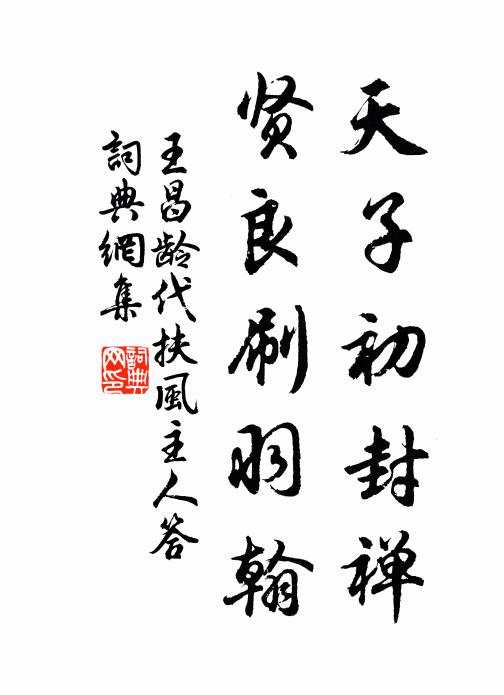 天子初封禅
贤良刷羽翰
王昌龄代扶風主人答
詞典網集
詞典网印